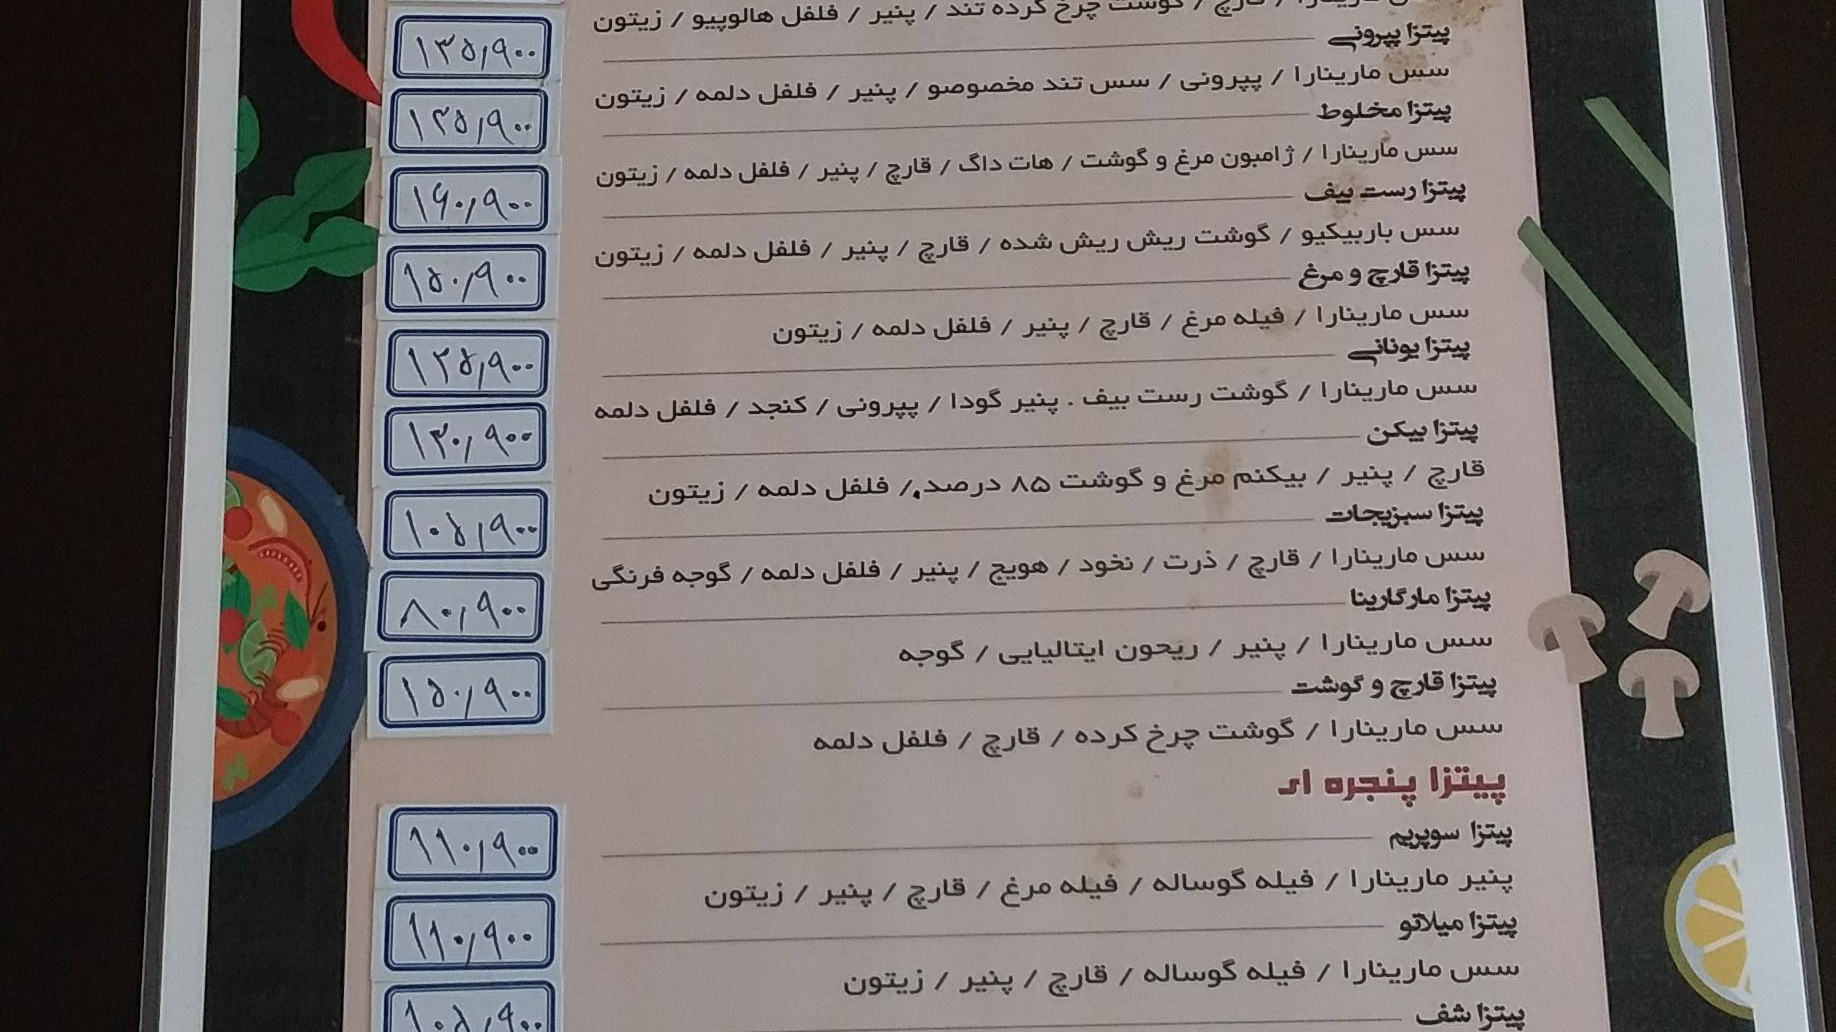 سس مارینارا / قارچ / گوشت چرخ کرده تند / پنیر / فلفل هالوپیو / زیتون
پیتزا پپرونی ۱۳۵,۹۰۰
سس مارینارا / پپرونی / سس تند مخصوصو / پنیر / فلفل دلمه / زیتون
پیتزا مخلوط ۱۳۵,۹۰۰
سس مارینارا / ژامبون مرغ و گوشت / هات داگ / قارچ / پنیر / فلفل دلمه / زیتون
پیتزا رست بیف ۱۶۰,۹۰۰
سس باربیکیو / گوشت ریش ریش شده / قارچ / پنیر / فلفل دلمه / زیتون
پیتزا قارچ و مرغ ۱۵۰,۹۰۰
سس مارینارا / فیله مرغ / قارچ / پنیر / فلفل دلمه / زیتون
پیتزا یونانی ۱۳۵,۹۰۰
سس مارینارا / گوشت رست بیف . پنیر گودا / پپرونی / کنجد / فلفل دلمه
پیتزا بیکن ۱۳۰,۹۰۰
قارچ / پنیر / بیکنم مرغ و گوشت ۸۵ درصد / فلفل دلمه / زیتون
پیتزا سبزیجات ۱۰۵,۹۰۰
سس مارینارا / قارچ / ذرت / نخود / هویج / پنیر / فلفل دلمه / گوجه فرنگی
پیتزا مارگارینا ۸۰,۹۰۰
سس مارینارا / پنیر / ریحون ایتالیایی / گوجه
پیتزا قارچ و گوشت ۱۵۰,۹۰۰
سس مارینارا / گوشت چرخ کرده / قارچ / فلفل دلمه
پیتزا پنجره ای
پیتزا سوپریم ۱۱۰,۹۰۰
پنیر مارینارا / فیله گوساله / فیله مرغ / قارچ / پنیر / زیتون
پیتزا میلاتو ۱۱۰,۹۰۰
سس مارینارا / فیله گوساله / قارچ / پنیر / زیتون
پیتزا شف ۱۰۵,۹۰۰